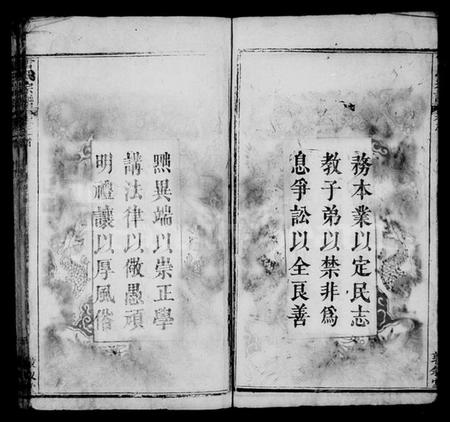 務本業以定民志
教子弟以禁非為
息爭訟以全良善
黜異端以崇正學
講法律以儆愚頑
明禮讓以厚風俗